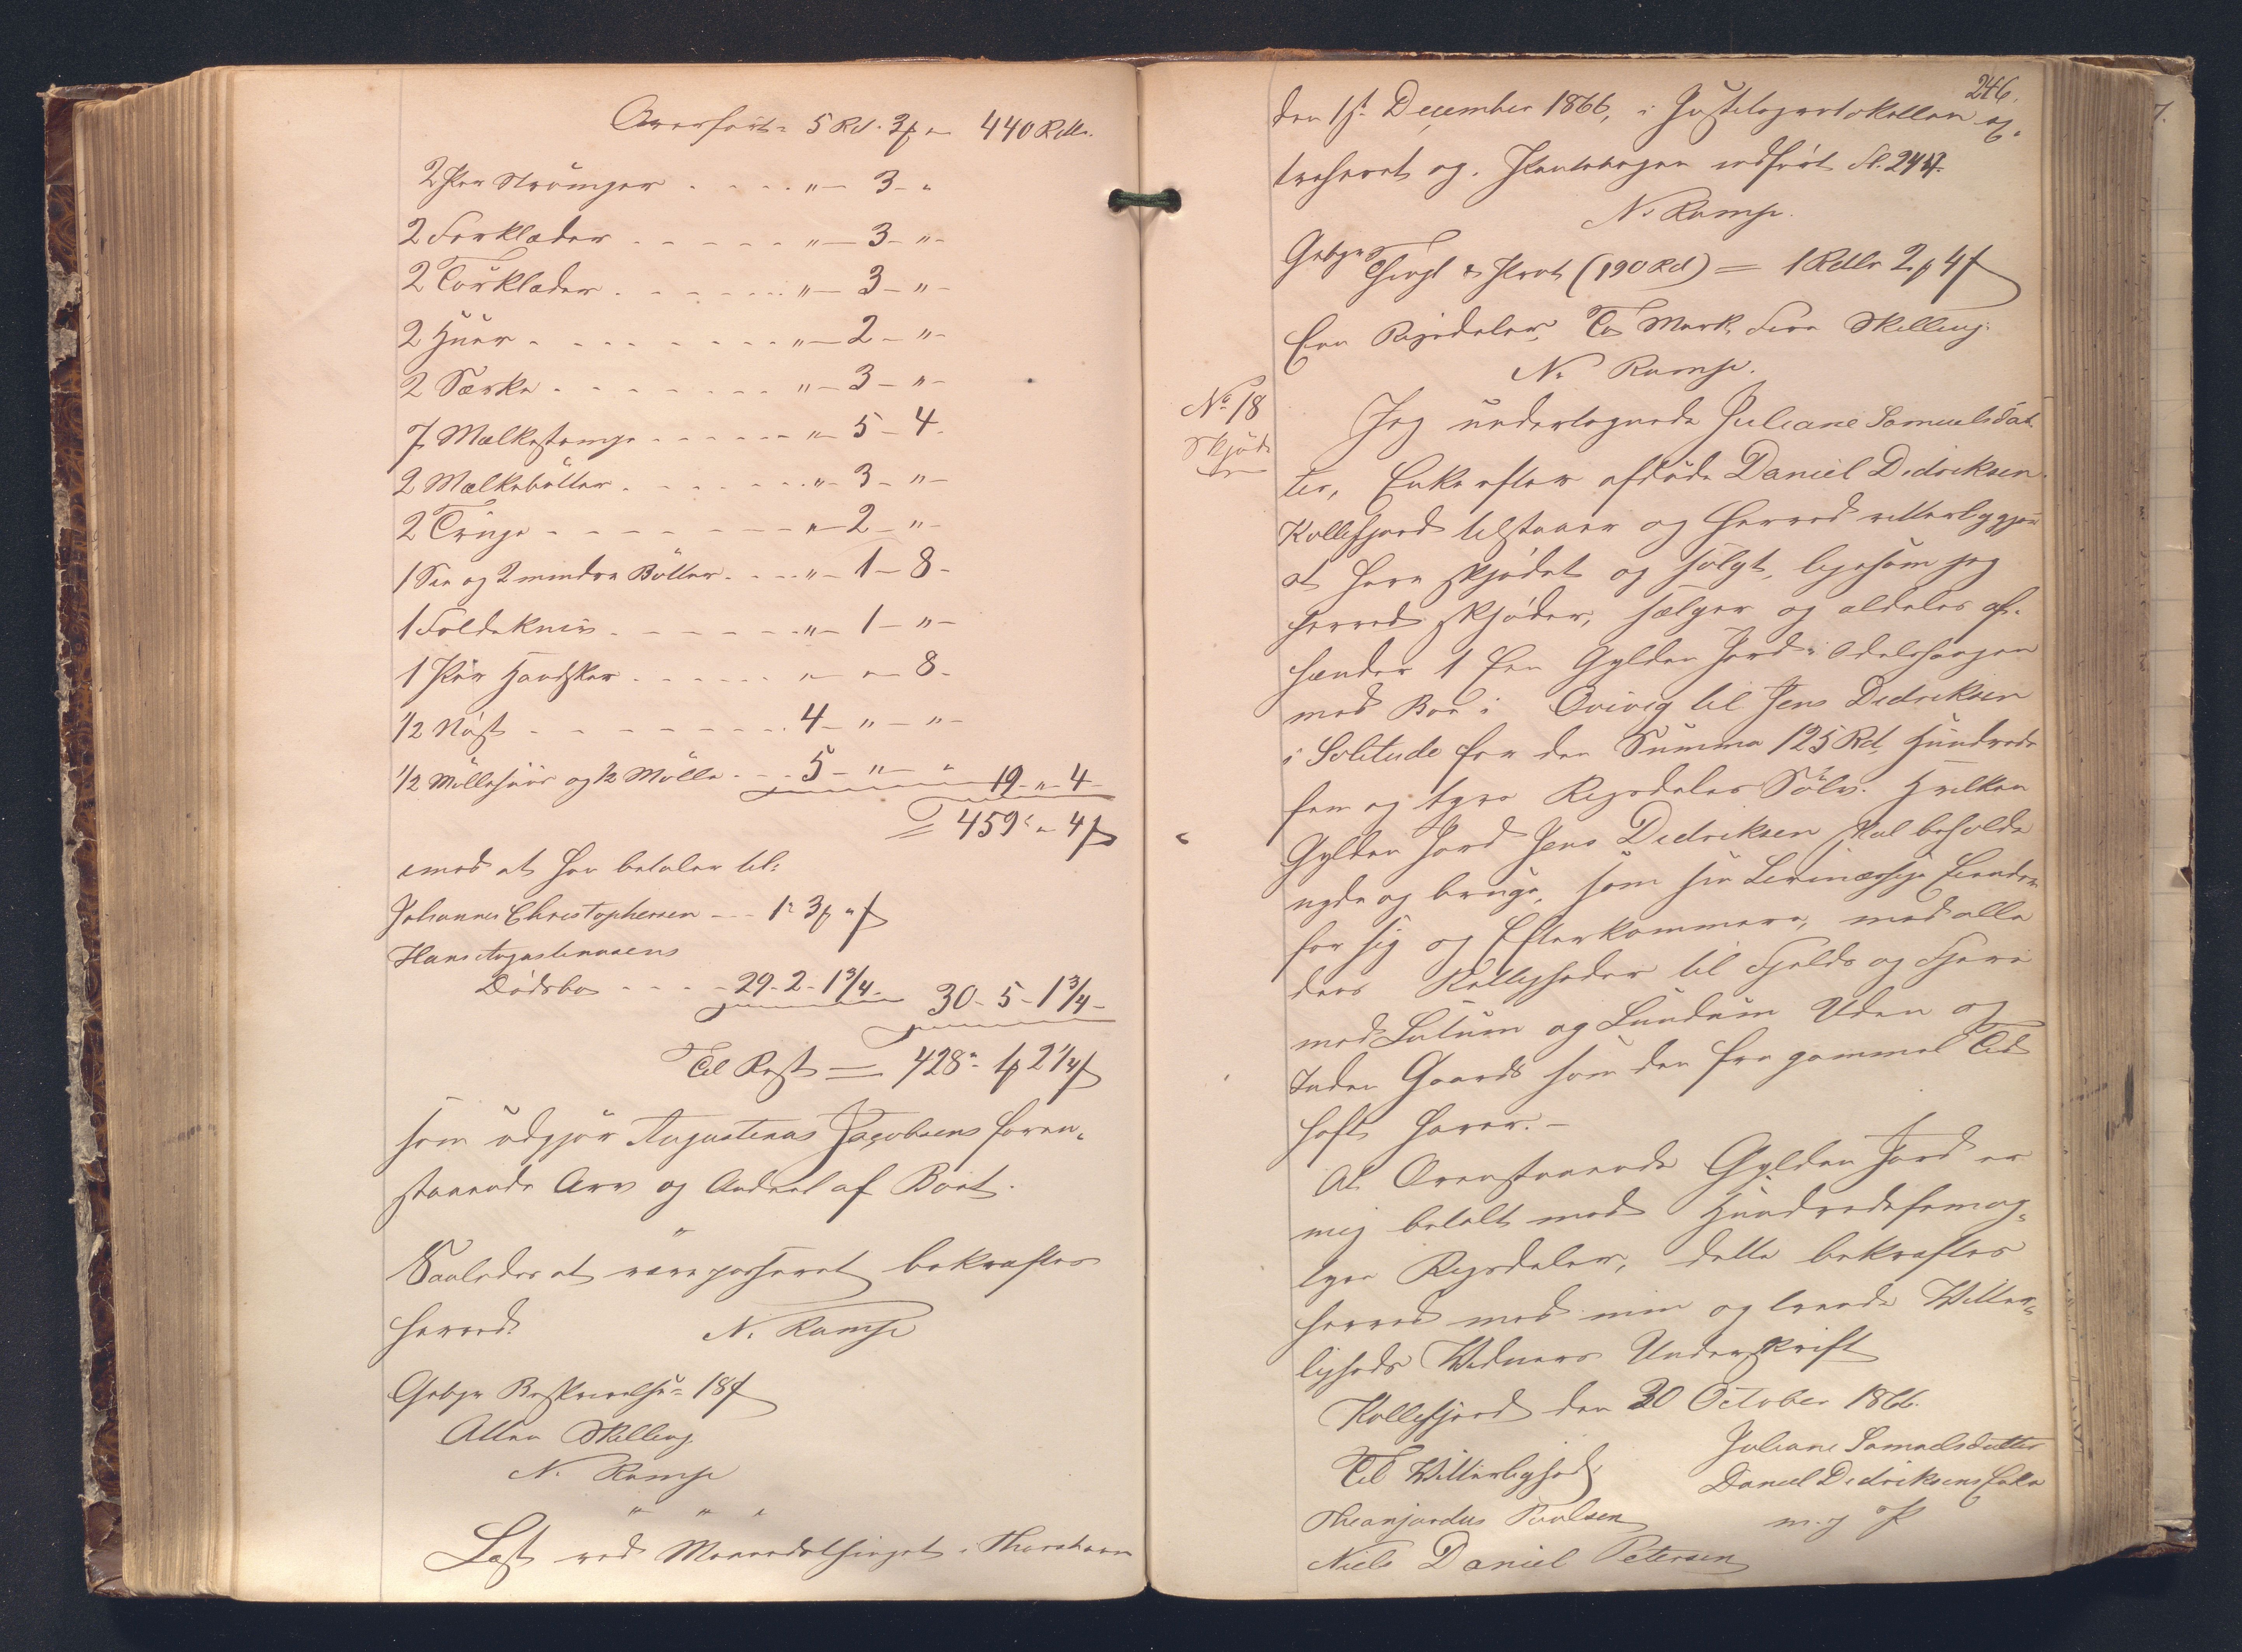 Overført = 5 Rd. 3 ꝑ „ 440 Rdlr.
2 Par Strömper . . . . „ — 3 - „
2 Forklæder - - - - - „ — 3 - „ -
2 Törklæder . - - - - „ — 3 - „ -
2 Huer - - - - - - „ — 2 - „ -
2 Særke - - - - - - „ — 3 - „ -
7 Malkestampe - - - - - „ 5 - 4 -
2 Malkebötter . - - - - „ - 3 - „ -
2 Truge - - - - - - - „ 2 - „ -
1 Sie og 2 mindre Bötter . - - „ - 1 - 8 -
1 Foldekniv - - - - - - „ - 1 - „ -
1 Par Handsker - - - - - „ - „ 8 -
1/2 Nøst - - - - - - 4 - „ - „ -
1/2 Möllehuus og 1/2 Mölle - - 5 - „ - „ 19 - „ 4 -
= 459 „ 4 ꞵ
imod at han betaler til:
Johannes Christophersen - - - 1 „ 3 ꝑ „ ꞵ
Hans Augustinusens
Dödsbo - - - - 29 - 2 - 1 3/4 - 30 - 5 - 1 3/4 -
Til Rest = 428 „ 1 ꝑ 2 1/4 ꞵ
som udgjør Augustinus Jacobsens foran-
staaende Arv og Andeel af Boet.
Saaledes at være passeret bekræftes
herved.
N. Ramse
Gebyr Beskrivelse = 18 ꞵ
Atten Skilling
N. Ramse
„ „ „
Læst ved Maanedsthinget i Thorshavn
246.
den 1st December 1866, i Justitsprotokollen ex-
traheret og i Pantebogen indført Fl. 244.
N. Ramse.
Gebyr Thingl & Prot (190 Rd) = 1 Rdlr 2 ꝑ 4 ꞵ
Een Rigsdaler To Mark Fire Skilling.
N. Ramse.
No 18
Skjøde
Jeg undertegnede Juliane Samuelsdat-
ter, Enke efter afdøde Daniel Didriksen
Kollefjord tilstaaer og herved vitterliggjør
at have skjødet og solgt, ligesom jeg
herved skjøder, sælger og aldeles af-
hænder 1 Een Gylden Jord i Odelshaugen
med Boe i Qvivig til Jens Didriksen
i Solitude for den Summa 125 Rd, Hundrede
fem og tyve Rigsdaler Sølv. Hvilken
Gylden Jord Jens Didriksen skal beholde
nyde og bruge, som sin Eiendom
for sig og Efterkommere, med alle
dens Rettigheder til Fjelds og Fjære
med Lutum og Lundum Uden og
Inden Gaards som den fra gammel Tid
haft haver. -
At Ovenstaaende Gylden Jord er
mig betalt med Hundredefemog-
tyve Rigsdaler, dette bekræftes
herved med min og tvende Vitter-
ligheds Vidners Underskrift
Kollefjord den 30 October 1866.
Til Vitterlighed:
Juliane Samuelsdatter
Daniel Didriksens Enke
m. f. P.
Poulsen
Niels Daniel Petersen